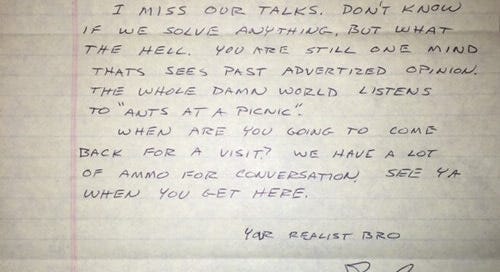 I MISS OUR TALKS. DON'T KNOW
IF WE SOLVE ANYTHING, BUT WHAT
THE HELL. YOU ARE STILL ONE MIND
THATS SEES PAST ADVERTIZED OPINION.
THE WHOLE DAMN WORLD LISTENS
TO "ANTS AT A PICNIC".
WHEN ARE YOU GOING TO COME
BACK FOR A VISIT? WE HAVE A LOT
OF AMMO FOR CONVERSATION. SEE YA
WHEN YOU GET HERE.
YOUR REALIST BRO